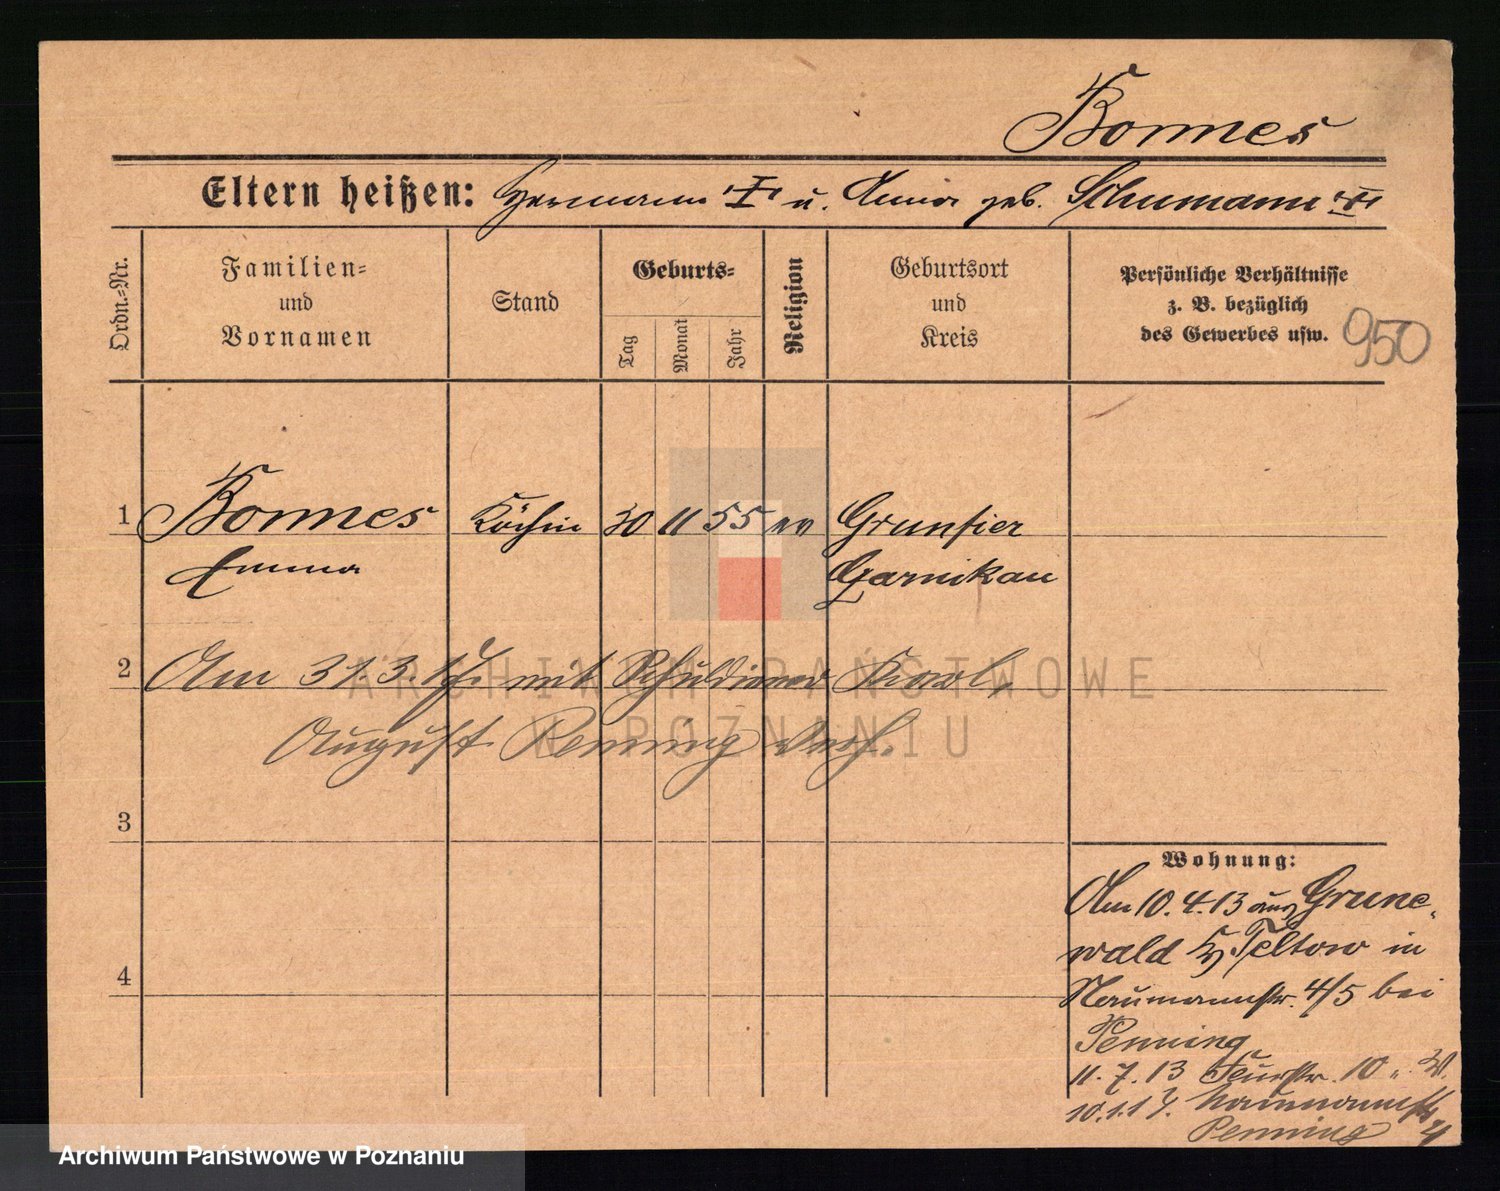 Bonnes
Eltern heißen: Hermann "I" u. Anna geb. Schumann "II"
Ordn.-Nr.
Familien-
und
Vornamen
Stand
Geburts-
Tag
Monat
Jahr
Religion
Geburtsort
und
Kreis
Persönliche Verhältnisse
z. B. bezüglich
des Gewerbes usw.
950
1 Bonnes Köchin 30 11 55 ev Grünfier
Emma Czarnikau
2 Am 31.3.17. mit Schuldiener Karl,
August Penning verh.
3
4
Wohnung:
Am 10.4.13 aus Grune-
wald Kr Teltow in
Naumannstr. 4/5 bei
Penning
11.7.13
10.1.17. Naumannstr 4
Penning
ARCHIWUM PAŃSTWOWE
W POZNANIU
Archiwum Państwowe w Poznaniu